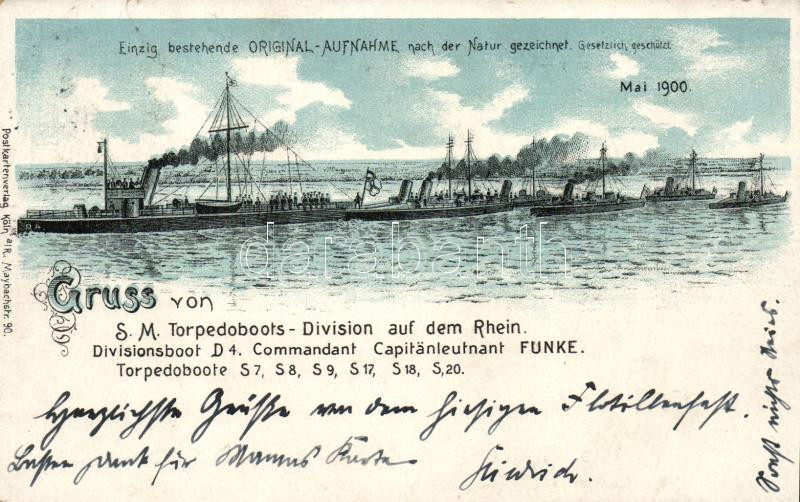 Einzig bestehende ORIGINAL-AUFNAHME nach der Natur gezeichnet. Gesetzlich geschützt.
Mai 1900.
Postkartenverlag Köln a/R., Maybachstr. 90.
D 4
databanth
Gruss von
S. M. Torpedoboots-Division auf dem Rhein.
Divisionsboot D 4. Commandant Capitänleutnant FUNKE.
Torpedoboote S 7, S 8, S 9, S 17, S 18, S, 20.
Herzlichste Grüße von dem hiesigen Flotillenfest.
Besten Dank für Mamas Karte
Sonst nichts Neues.